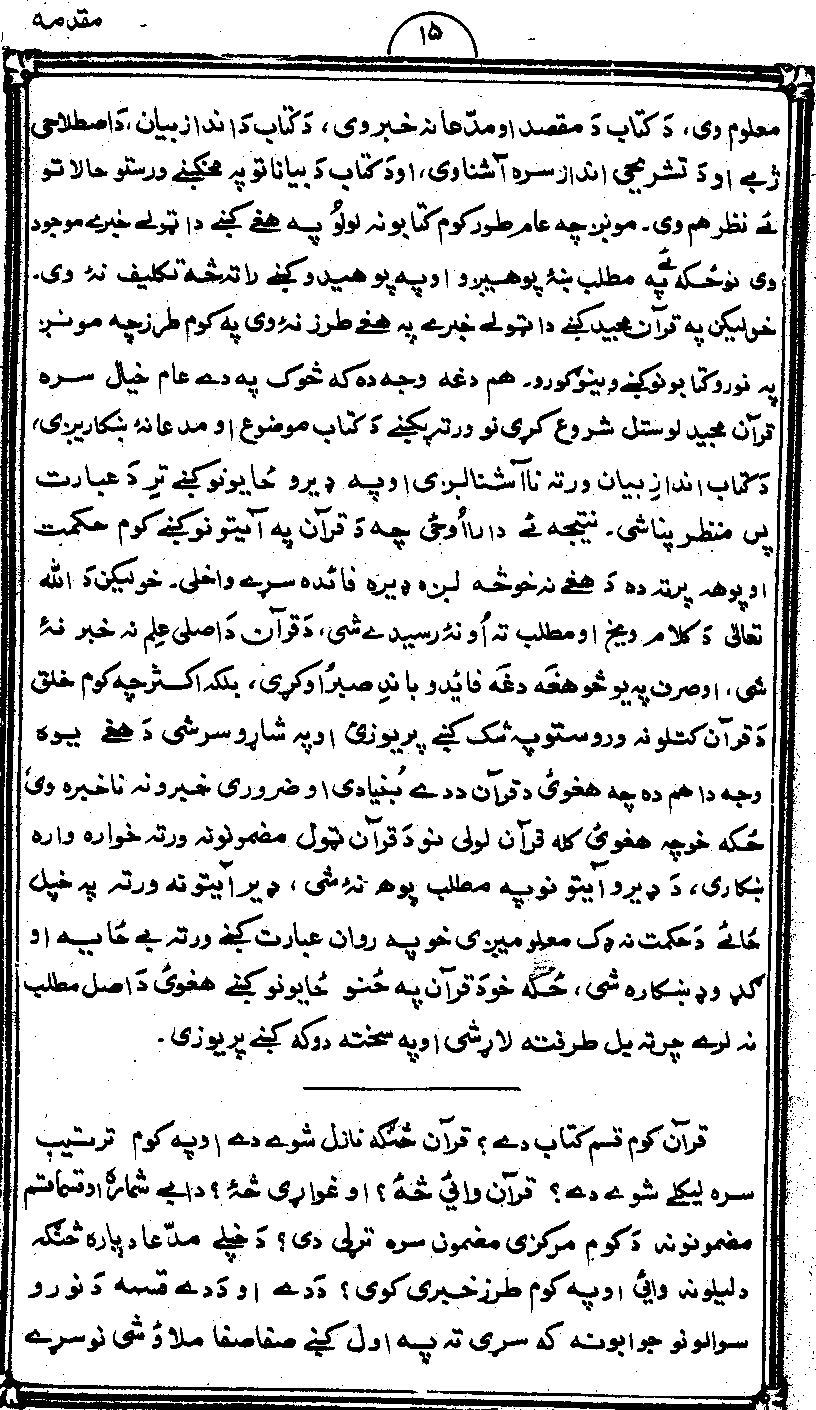 مقدمه
۱۵
معلوم وی، دَ کتاب دَ مقصد او مدّعا نه خبر وی، دَ کتاب دَ انداز بیان، دَ اصطلاحی
ژبے او دَ تشریحی انداز سره آشنا وی، او دَ کتاب دَ بیاناتو په مخکښے ورستو حالاتو
ئے نظر هم وی۔ مونږ چه عام طور کوم کتابونه لولُو په هغے کښے دا ټولے خبرے موجود
وی نو ځکه ئے په مطلب ښهٔ پوهیږو او په پوهیدو کښے راته څه تکلیف نهٔ وی۔
خو لیکن په قرآن مجید کښے دا ټولے خبرے په هغے طرز نهٔ وی په کوم طرز چه مونږ
په نورو کتابونو کښے وینو ګورو۔ هم دغه وجه ده که څوک په دے عام خیال سره
قرآن مجید لوستل شروع کړی نو ورته پکښے دَ کتاب موضوع او مدعا نهٔ ښکاریږی،
دَ کتاب اندازِ بیان ورته نا آشنا لږی او په ډیرو ځایونو کښے ترِ دَ عبارت
پس منظر پنا شی۔ نتیجه ئے دا راأوځی چه دَ قرآن په آیتونو کښے کوم حکمت
او پوهه پرته ده دَ هغے نه خو څه لږه ډیره فائده سرے واخلی۔ خو لیکن دَ الله
تعالیٰ دَ کلام ویخ او مطلب ته اُو نهٔ رسیدے شی، دَ قرآن دَ اصلی علِم نه خبر نهٔ
شی، او صرن په یو څو هغه دغه فائیدو باندِ صبر اُوکړی، بلکه اکثر چه کوم خلق
دَ قرآن کتلو نه وروستو په شک کښے پریوزی او په شاړو سر شی دَ هغے یوه
وجه دا هم ده چه هغویُ د قرآن د دے بُنیادی او ضروری خبرو نه ناخبره ویُ
ځکه خو چه هغویُ کله قرآن لولی نو دَ قرآن ټول مضمونونه ورته خواره واره
ښکاری، دَ ډیرو آیتونو په مطلب پوه نهٔ شی، ډیر آیتونه ورته په خپل
ځائے دَ حکمت نه ډک معلومیږی خو په روان عبارت کښے ورته بے ځایه او
ګډ وډ ښکاره شی، ځکه خو دَ قرآن په ځنو ځایونو کښے هغویُ دَ اصل مطلب
نه لرے چرته بل طرفته لاړ شی او په سخته دوکه کښے پریوزی۔
قرآن کوم قسم کتاب دے؟ قرآن څنګه نازل شوے دے او په کوم ترتیب
سره لیکلے شوے دے؟ قرآن وائیُ څهٔ؟ او غواړی څهٔ؟ دا بے شماره او قسماقسم
مضمونونه دَ کوم مرکزی مضمون سره تړلی دی؟ دَ خپلے مدّعا دپاره څنګه
دلیلونه وائیُ او په کوم طرز خبری کوی؟ دَ دے او دَ دے قسمه دَ نورو
سوالونو جوابونه که سړی ته په اول کښے صفا صفا ملاؤ شی نو سرے